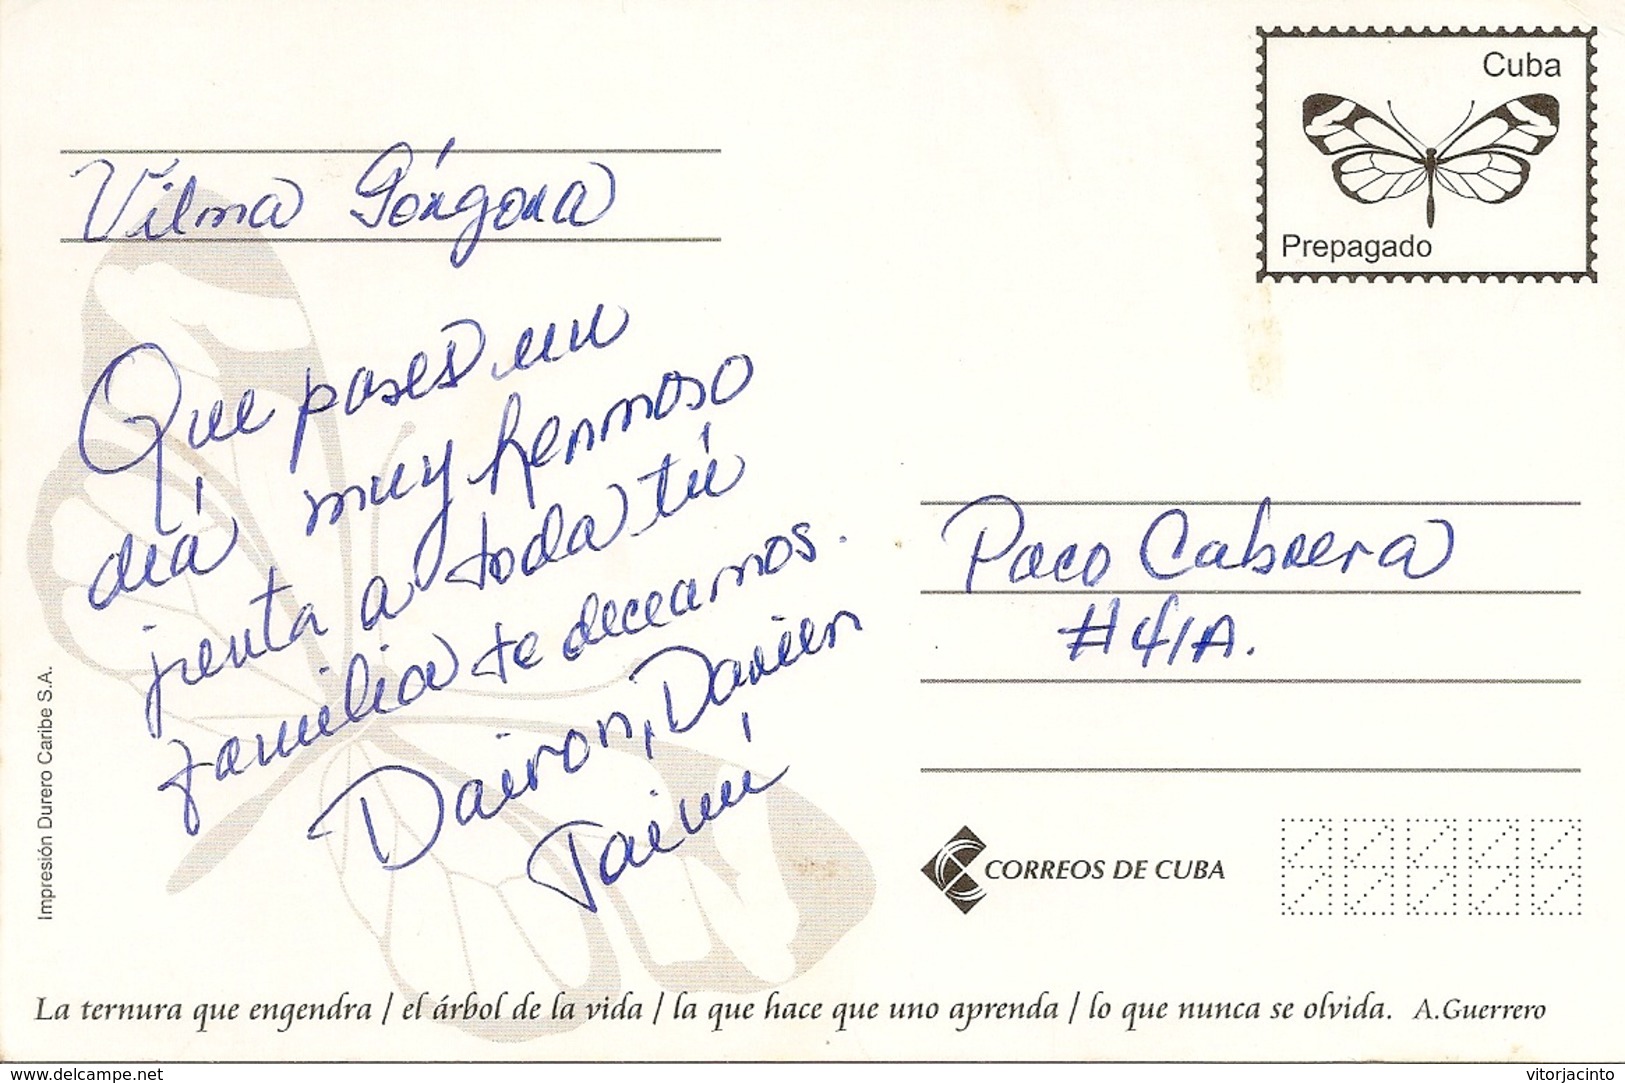 Cuba
Prepagado
Vilma Góngora
Que pases un
día muy hermoso
junta a toda tú
familia te deceamos.
Dairon, Darien
Taimí
Paco Cabrera
#41A.
Impresión Durero Caribe S.A.
CORREOS DE CUBA
La ternura que engendra / el árbol de la vida / la que hace que uno aprenda / lo que nunca se olvida. A.Guerrero
www.delcampe.net
vitorjacinto